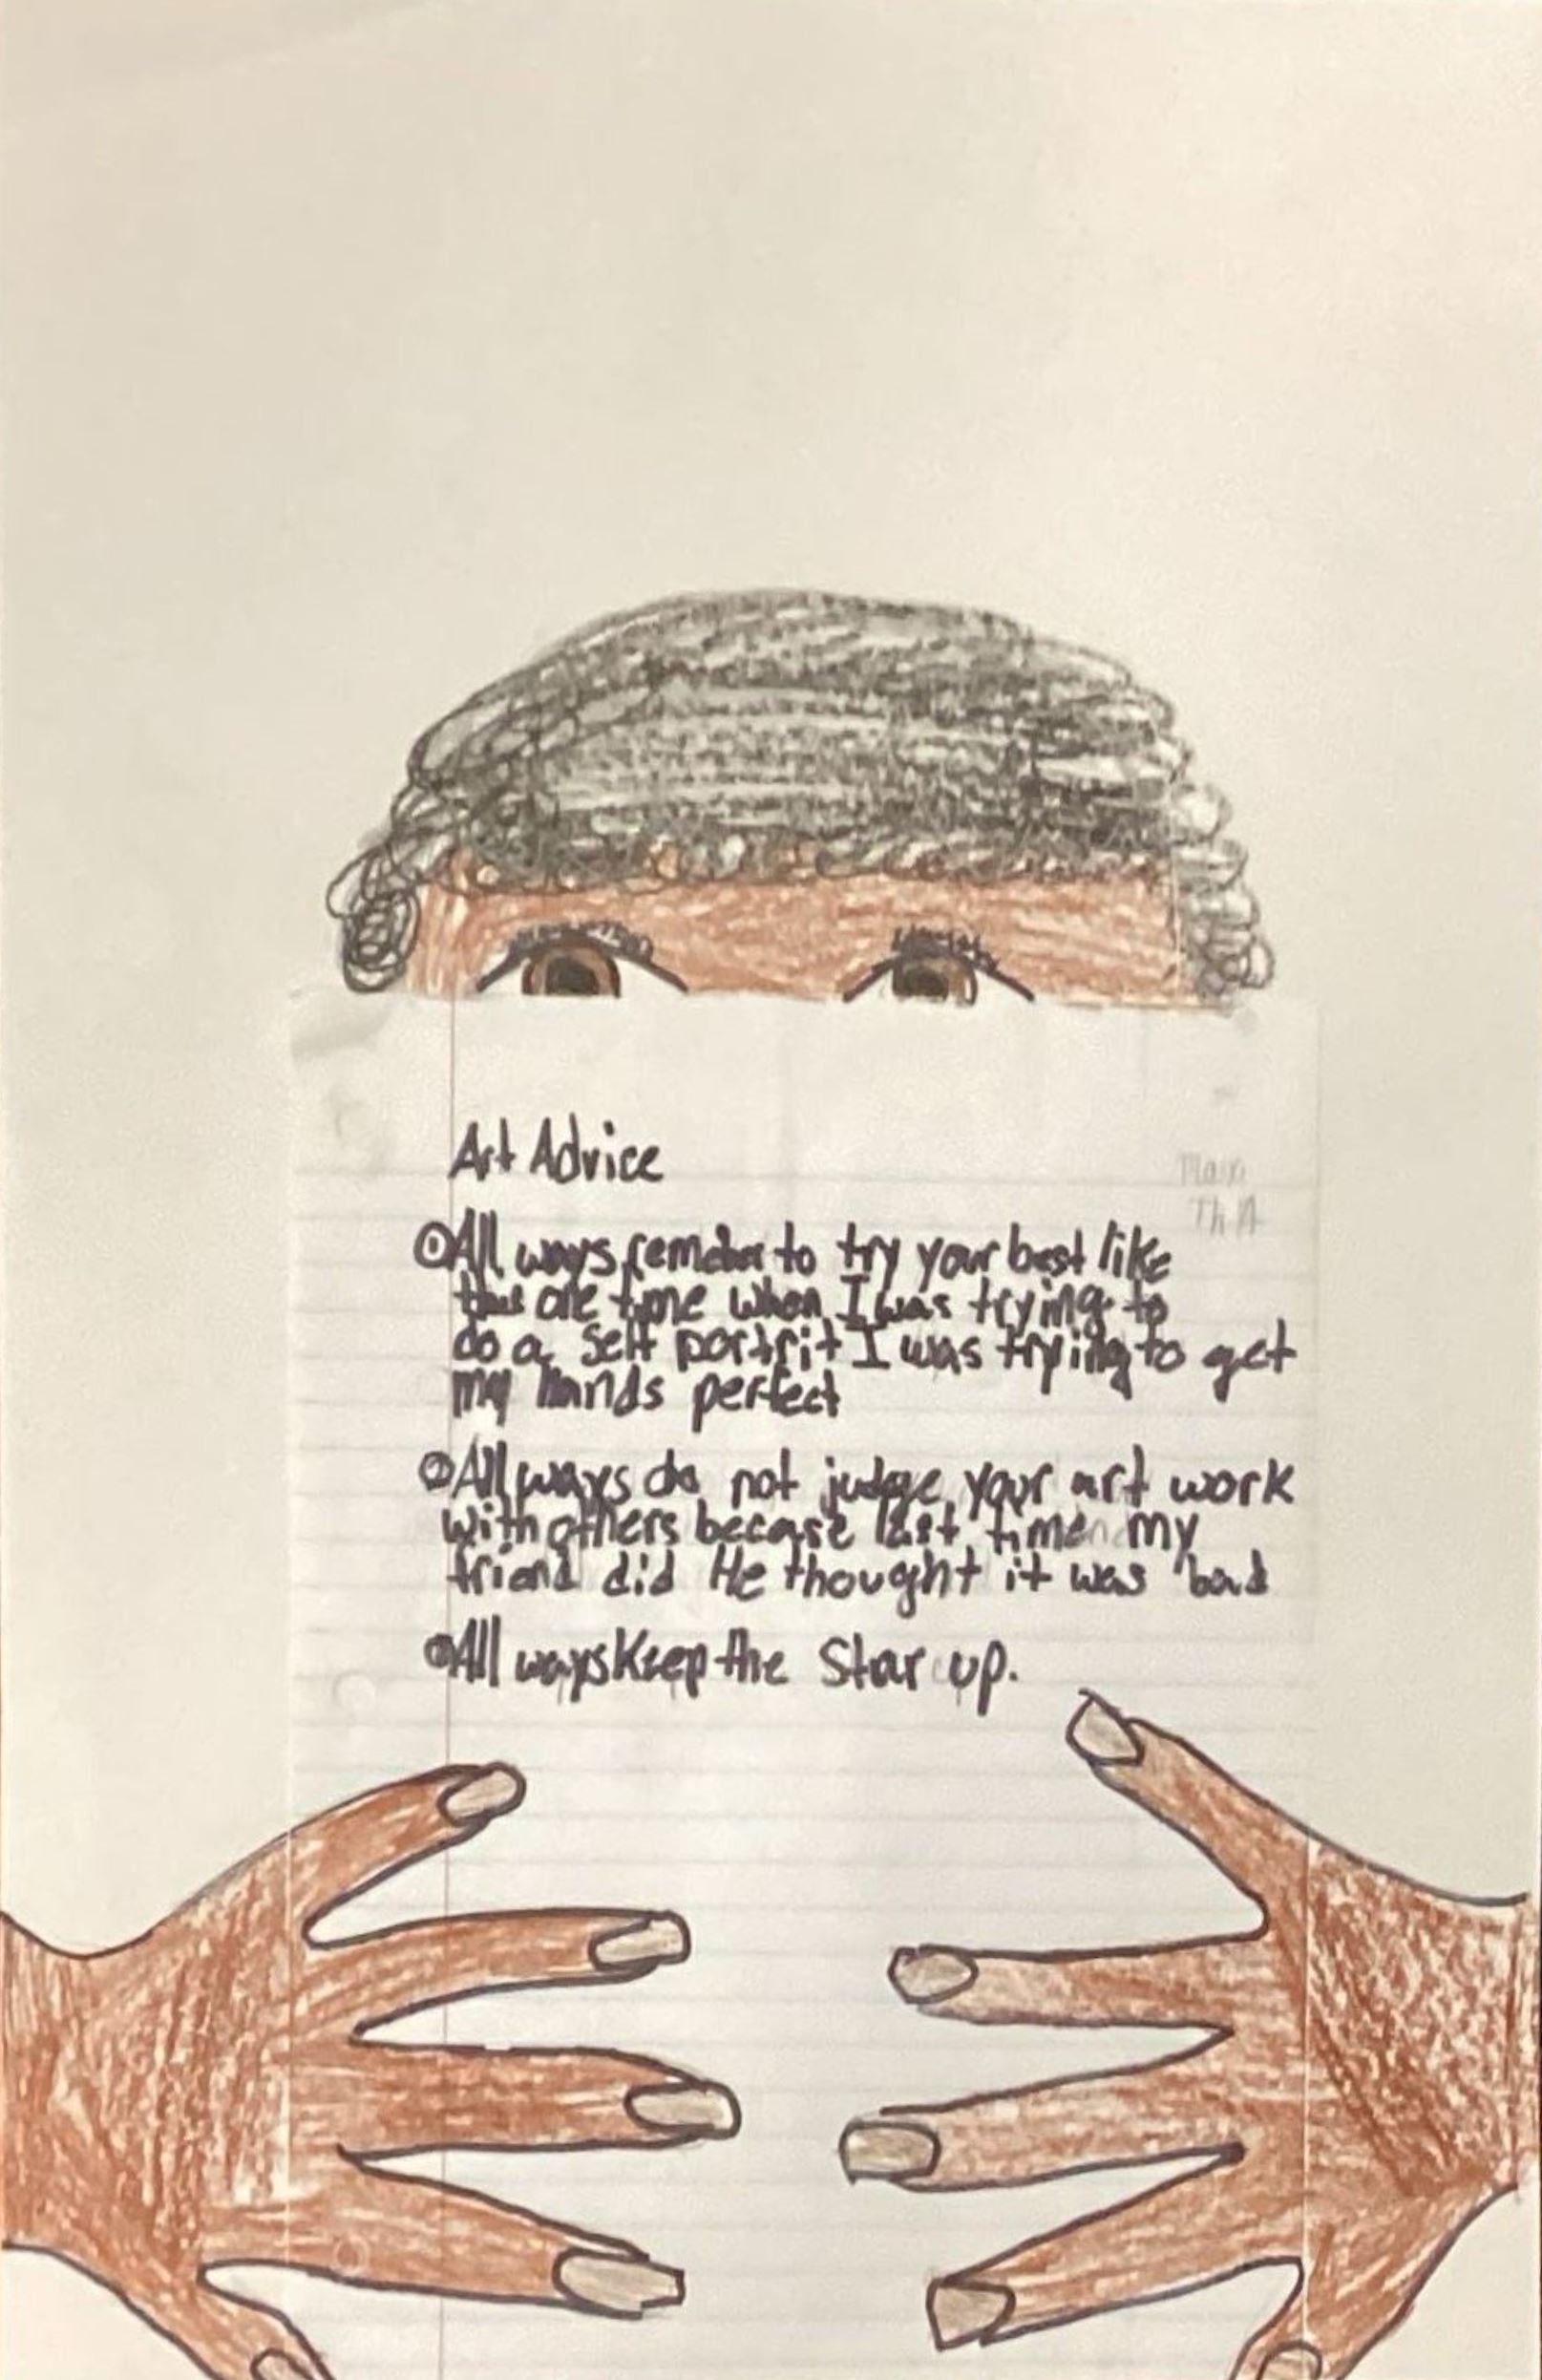 Art Advice
Maxi
Th A
① All ways remeber to try your best like
this one time when I was trying to
do a self portrit I was trying to get
my hands perfect
② All ways do not judge your art work
with others becase last time my
friend did He thought it was bad
All ways Keep the Star up.